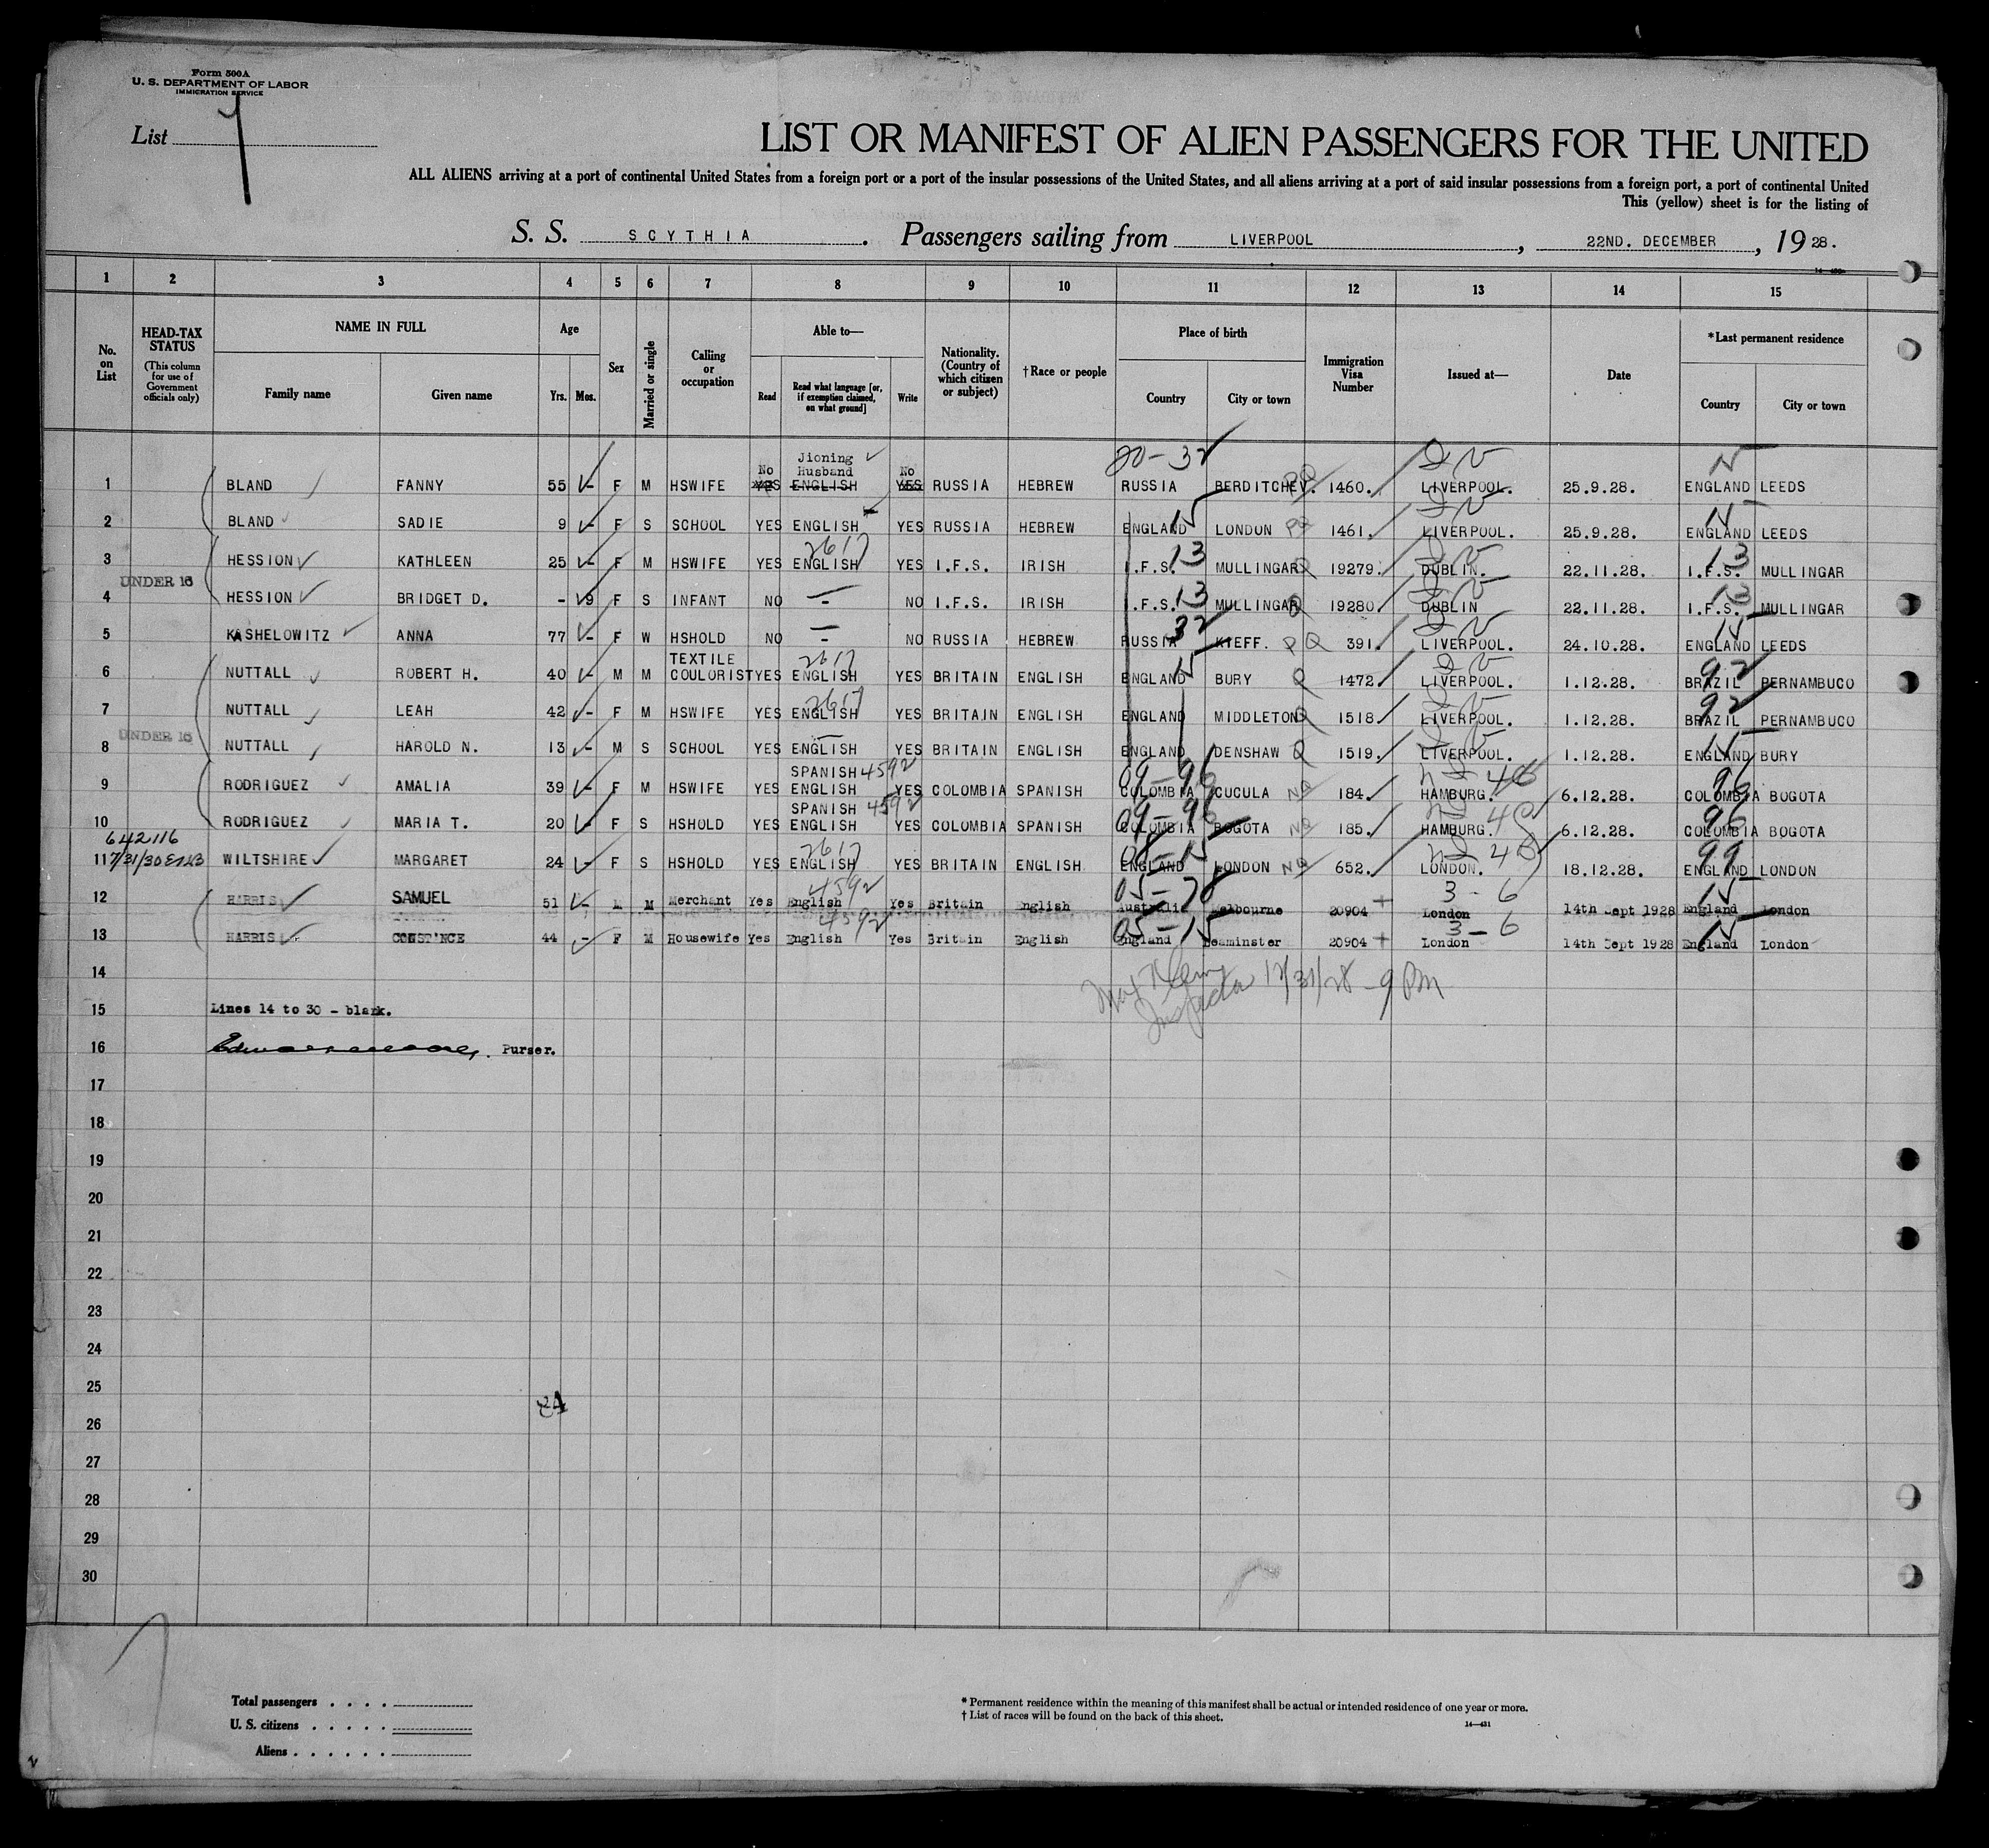 Form 500A
U. S. DEPARTMENT OF LABOR
IMMIGRATION SERVICE
List
LIST OR MANIFEST OF ALIEN PASSENGERS FOR THE UNITED
ALL ALIENS arriving at a port of continental United States from a foreign port or a port of the insular possessions of the United States, and all aliens arriving at a port of said insular possessions from a foreign port, a port of continental United
This (yellow) sheet is for the listing of
S. S. SCYTHIA. Passengers sailing from LIVERPOOL, 22ND. DECEMBER, 19 28.
1 2 3 4 5 6 7 8 9 10 11 12 13 14 15
No. on List
HEAD-TAX STATUS (This column for use of Government officials only)
NAME IN FULL
Family name Given name
Age
Yrs. Mos.
Sex
Married or single
Calling or occupation
Able to—
Read
Read what language [or, if exemption claimed, on what ground]
Write
Nationality. (Country of which citizen or subject)
†Race or people
Place of birth
Country City or town
Immigration Visa Number
Issued at—
Date
*Last permanent residence
Country City or town
20-32
No Jioning Husband No
1 BLAND FANNY 55 - F M HSWIFE YES ENGLISH YES RUSSIA HEBREW RUSSIA BERDITCHEV. 1460. LIVERPOOL. 25.9.28. ENGLAND LEEDS
2 BLAND SADIE 9 - F S SCHOOL YES ENGLISH YES RUSSIA HEBREW ENGLAND LONDON PQ 1461. LIVERPOOL. 25.9.28. ENGLAND LEEDS
2617 13 13
3 HESSION KATHLEEN 25 - F M HSWIFE YES ENGLISH YES I.F.S. IRISH I.F.S. MULLINGAR Q 19279. DUBLIN. 22.11.28. I.F.S. MULLINGAR
UNDER 16
4 HESSION BRIDGET D. - 9 F S INFANT NO - NO I.F.S. IRISH I.F.S. 13 MULLINGAR Q 19280. DUBLIN 22.11.28. I.F.S. 13 MULLINGAR
5 KASHELOWITZ ANNA 77 - F W HSHOLD NO - NO RUSSIA HEBREW RUSSIA 32 KIEFF. PQ 391. LIVERPOOL. 24.10.28. ENGLAND LEEDS
TEXTILE 2617 92
6 NUTTALL ROBERT H. 40 - M M COULORIST YES ENGLISH YES BRITAIN ENGLISH ENGLAND BURY Q 1472. LIVERPOOL. 1.12.28. BRAZIL PERNAMBUCO
2617 92
7 NUTTALL LEAH 42 - F M HSWIFE YES ENGLISH YES BRITAIN ENGLISH ENGLAND MIDDLETON Q 1518. LIVERPOOL. 1.12.28. BRAZIL PERNAMBUCO
UNDER 16
8 NUTTALL HAROLD N. 13 - M S SCHOOL YES ENGLISH YES BRITAIN ENGLISH ENGLAND DENSHAW Q 1519. LIVERPOOL. 1.12.28. ENGLAND BURY
SPANISH 4592 09-96 96
9 RODRIGUEZ AMALIA 39 - F M HSWIFE YES ENGLISH YES COLOMBIA SPANISH COLOMBIA CUCULA NQ 184. HAMBURG. 6.12.28. COLOMBIA BOGOTA
SPANISH 4592 09-96 96
10 RODRIGUEZ MARIA T. 20 - F S HSHOLD YES ENGLISH YES COLOMBIA SPANISH COLOMBIA BOGOTA NQ 185. HAMBURG. 6.12.28. COLOMBIA BOGOTA
642116 2617 99
11 7/31/30 WILTSHIRE MARGARET 24 - F S HSHOLD YES ENGLISH YES BRITAIN ENGLISH ENGLAND LONDON NQ 652. LONDON. 18.12.28. ENGLAND LONDON
4592 05-78 3-6
12 HARRIS SAMUEL 51 - M M Merchant Yes English Yes Britain English Australia Melbourne 20904 London 14th Sept 1928 England London
4592 05-15 3-6
13 HARRIS CONST'NCE 44 - F M Housewife Yes English Yes Britain English England Beaminster 20904 London 14th Sept 1928 England London
14
Inspector 12/31/28 - 9 PM
15 Lines 14 to 30 - blank.
16 Purser.
17
18
19
20
21
22
23
24
25
26
27
28
29
30
Total passengers . . . .
U. S. citizens . . . . .
Aliens . . . . . .
* Permanent residence within the meaning of this manifest shall be actual or intended residence of one year or more.
† List of races will be found on the back of this sheet.
14—431